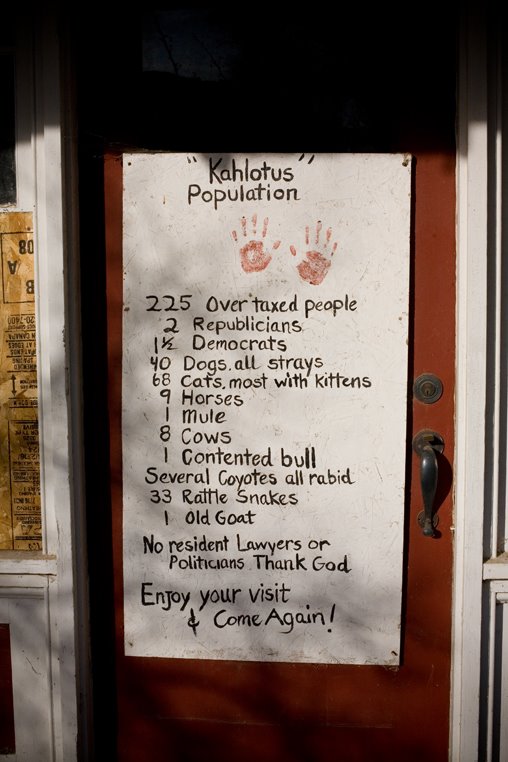 "Kahlotus"
Population
225 Over taxed people
2 Republicians
1½ Democrats
40 Dogs. all strays
68 Cats, most with kittens
9 Horses
1 Mule
8 Cows
1 Contented bull
Several Coyotes all rabid
33 Rattle Snakes
1 Old Goat
No resident Lawyers or
Politicians Thank God
Enjoy your visit
& Come Again!
80
A
20-7600